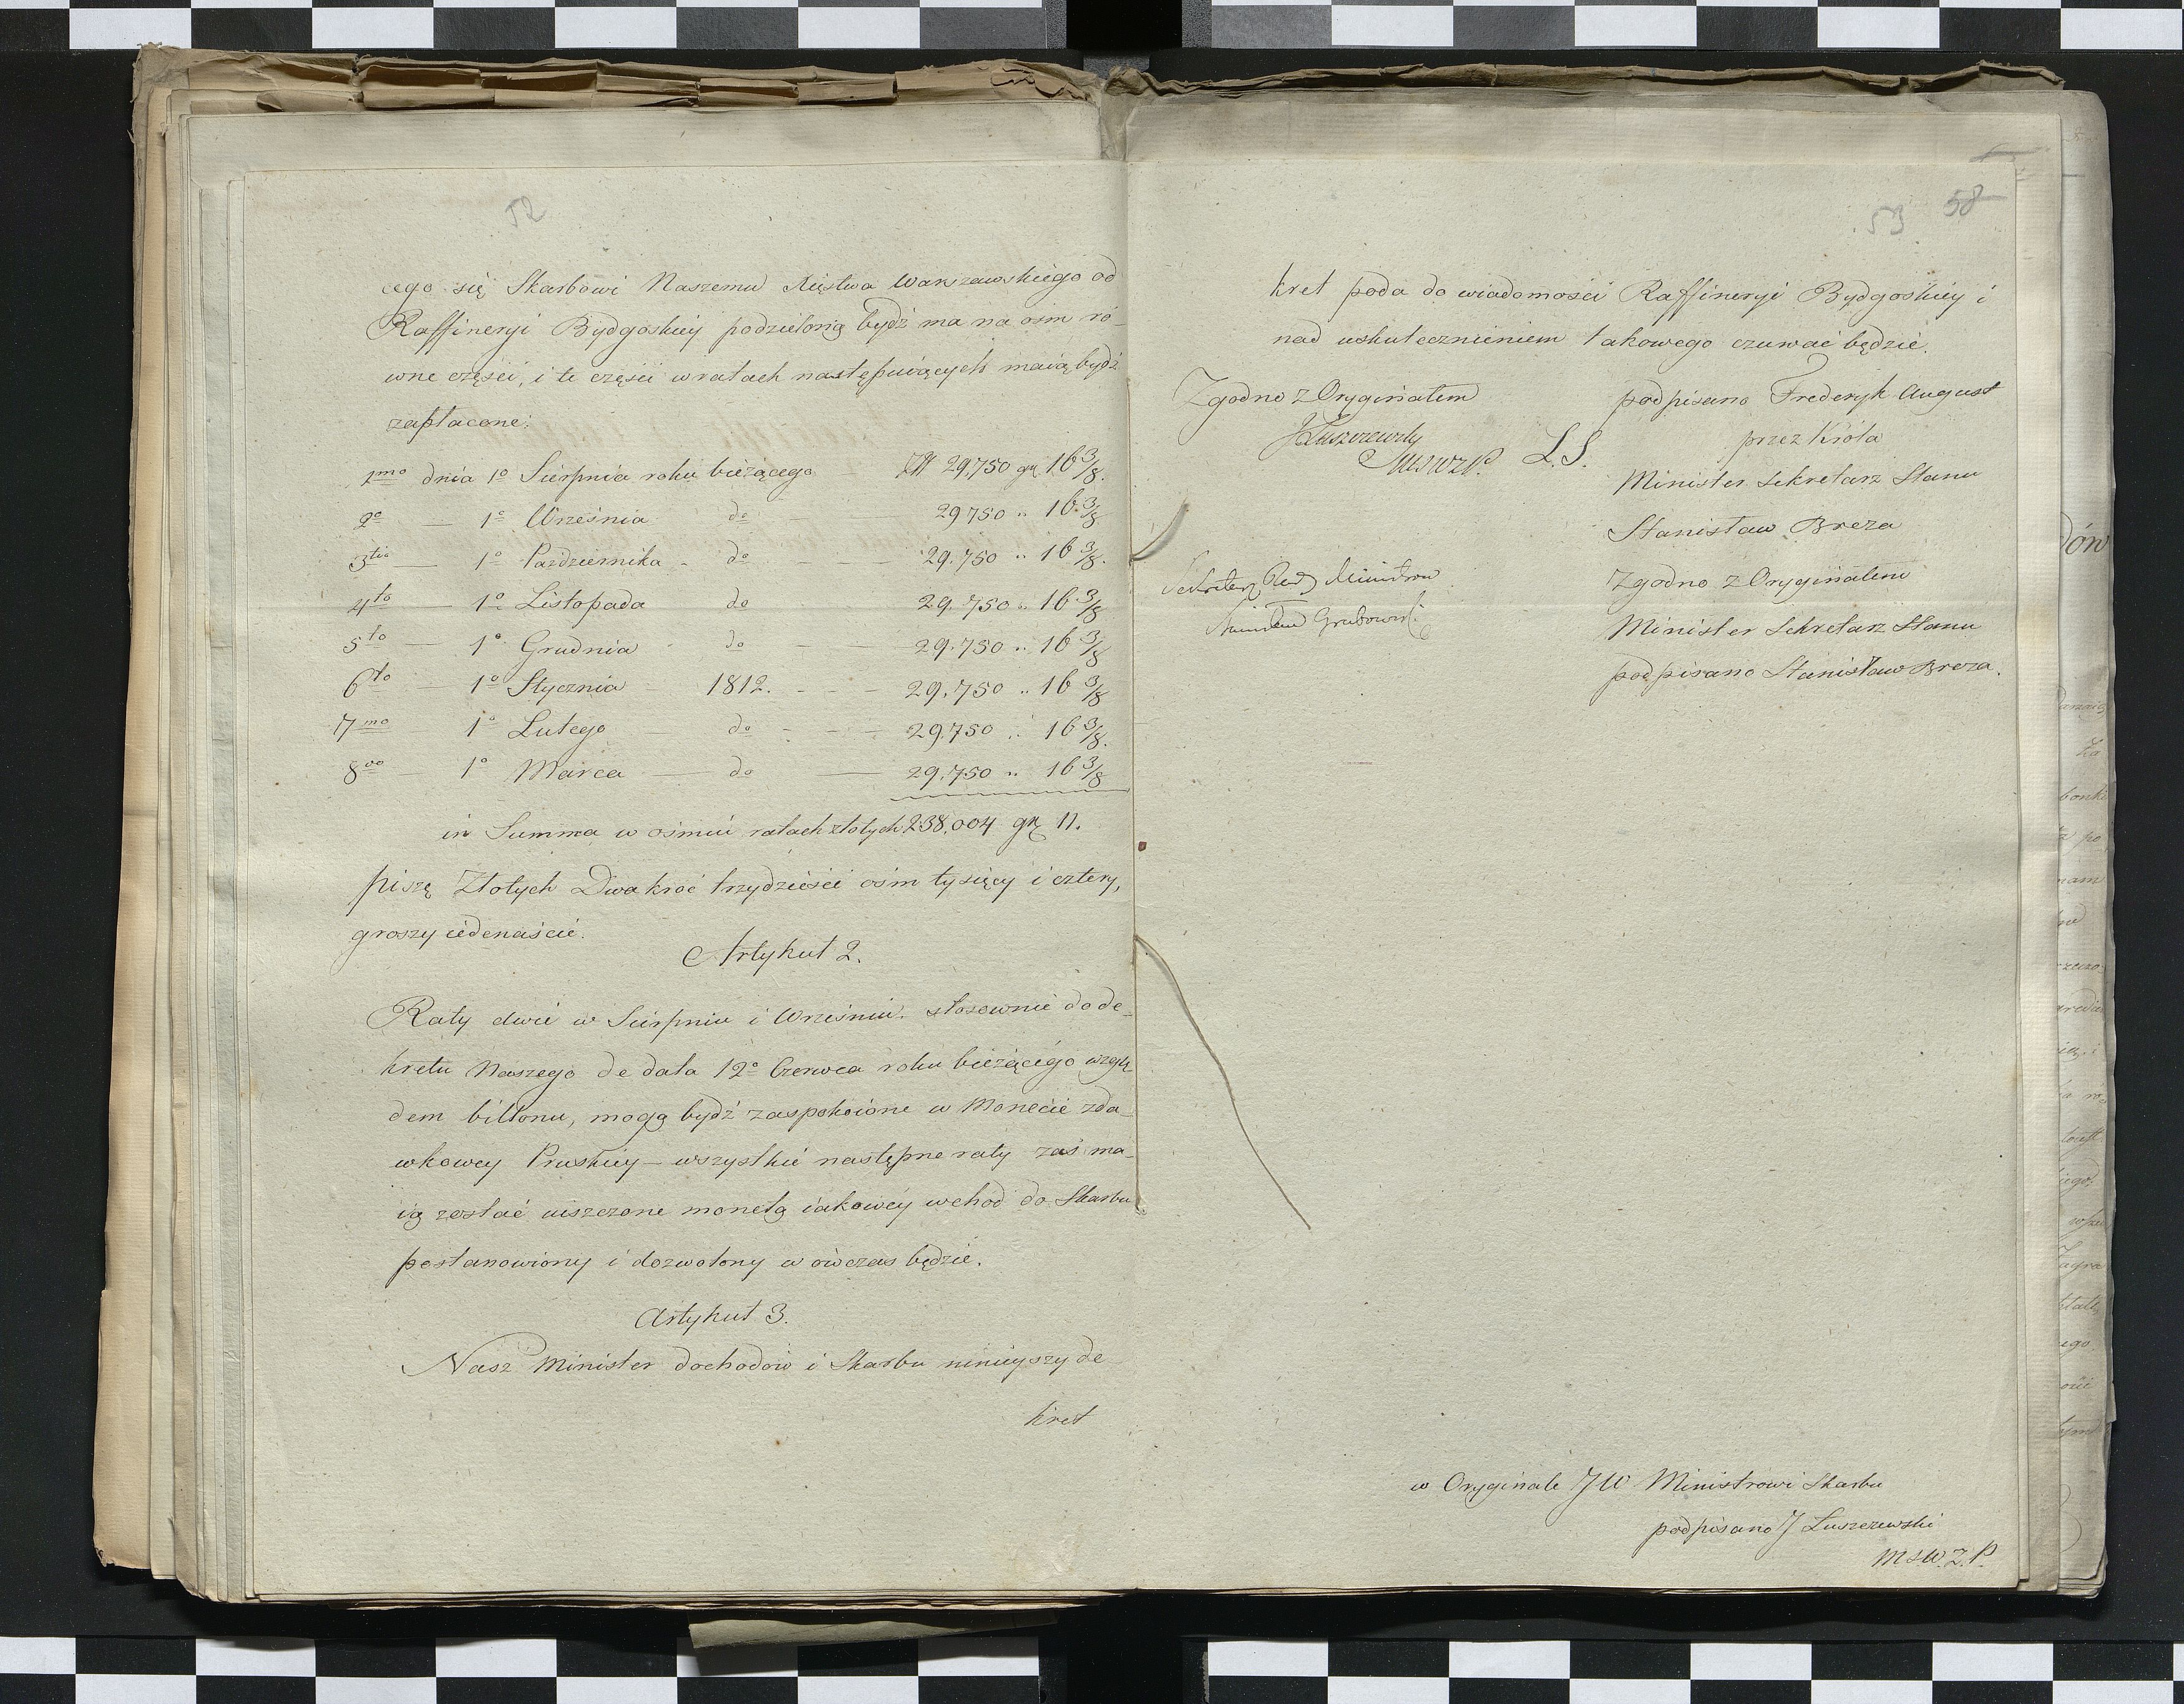 52
cego się Skarbowi Naszemu Xięstwa Warszawskiego od
Raffineryi Bydgoskiey podzieloną bydź ma na ośm ró-
wne części, i te części w ratach następuiących maią bydź
zapłacone:
1mo dnia 1o Sierpnia roku bieżącego 29.750 gr 16 3/8.
2o — 1o Września do - — 29750 " 16 3/8
3tio — 1o Pazdziernika - do - — 29.750 " 16 3/8.
4to — 1o Listopada do 29.750 " 16 3/8
5to — 1o Grudnia - do - — 29.750 " 16 3/8
6to — 1o Stycznia — 1812. - - - 29.750 " 16 3/8
7mo — 1o Lutego — do - - — 29.750 " 16 3/8.
8vo — 1o Marca — do — 29.750 " 16 3/8
in Summa w ośmiu ratach złotych 238,004 gr 11.
piszę Złotych Dwakroć trzydzieści ośm tysięcy i cztery,
groszy iedenaście.
Artykuł 2.
Raty dwie w Sierpniu i Wrześniu. stosownie do de-
kretu Naszego de data 12o Czerwca roku bieżącego wzglę-
dem billonu, mogą bydź zaspokoione w Monecie zda-
wkowey Pruskiey — wszystkie następne raty zaś ma-
ią zostać uiszczone monetą iakowey wchod do Skarbu
postanowiony i dozwolony w ówczas będzie.
Artykuł 3.
Nasz Minister dochodów i Skarbu ninieyszy de
kret
53 58
kret poda do wiadomości Raffineryi Bydgoskiey i
nad uskutecznieniem takowego czuwać będzie.
Zgodno z Oryginałem
JŁuszczewski
MSWZP.
L.S.
podpisano Frederyk August
przez Króla
Minister Sekretarz Stanu
Stanisław Breza
Zgodno z Oryginałem
Minister Sekretarz Stanu
podpisano Stanisław Breza.
Sekretarz Rady Ministrów
Grabowski
w Oryginale JW Ministrowi Skarbu
podpisano J Łuszczewski
MSW.Z.P.